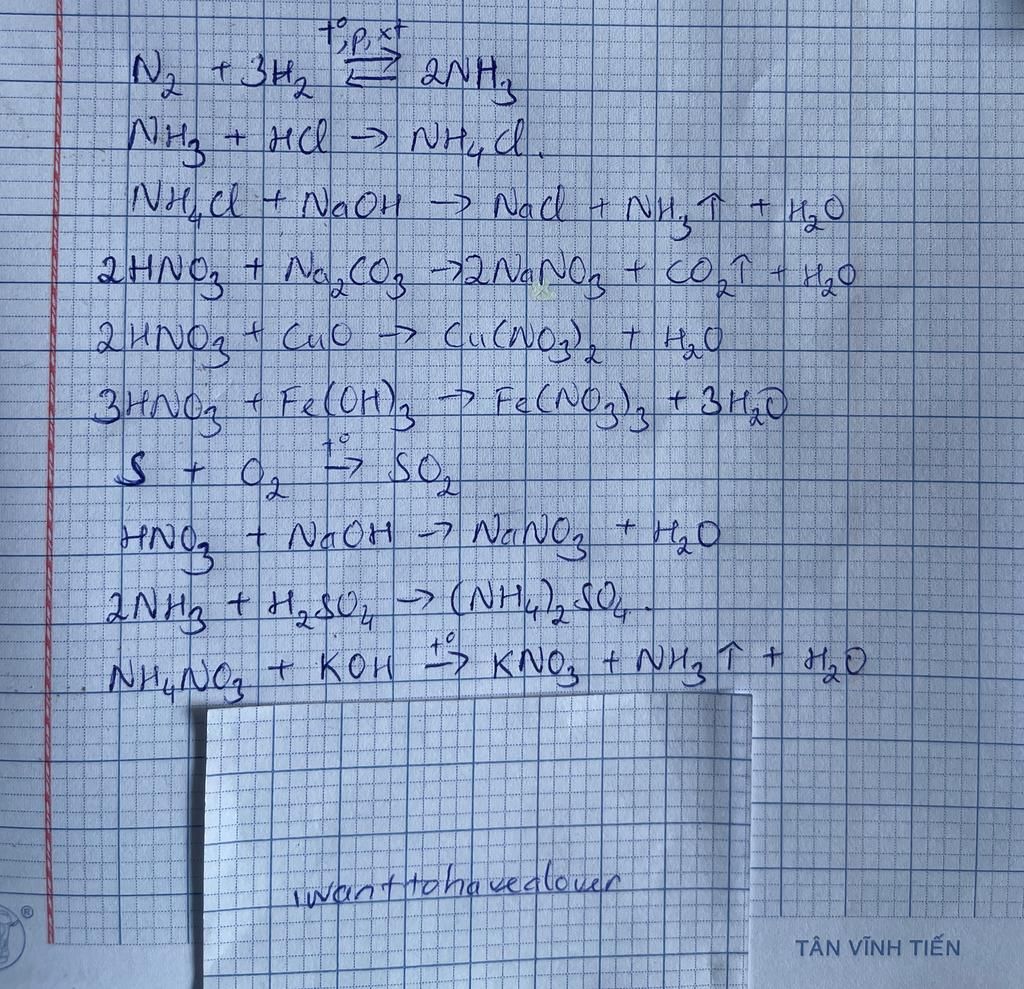 t°, p, xt
N₂ + 3H₂ ⇌ 2NH₃
NH₃ + HCl → NH₄Cl.
NH₄Cl + NaOH → NaCl + NH₃↑ + H₂O
2HNO₃ + Na₂CO₃ → 2NaNO₃ + CO₂↑ + H₂O
2HNO₃ + CuO → Cu(NO₃)₂ + H₂O
3HNO₃ + Fe(OH)₃ → Fe(NO₃)₃ + 3H₂O
t°
S + O₂ → SO₂
HNO₃ + NaOH → NaNO₃ + H₂O
2NH₃ + H₂SO₄ → (NH₄)₂SO₄.
t°
NH₄NO₃ + KOH → KNO₃ + NH₃↑ + H₂O
iwanttohavealover
®
TÂN VĨNH TIẾN